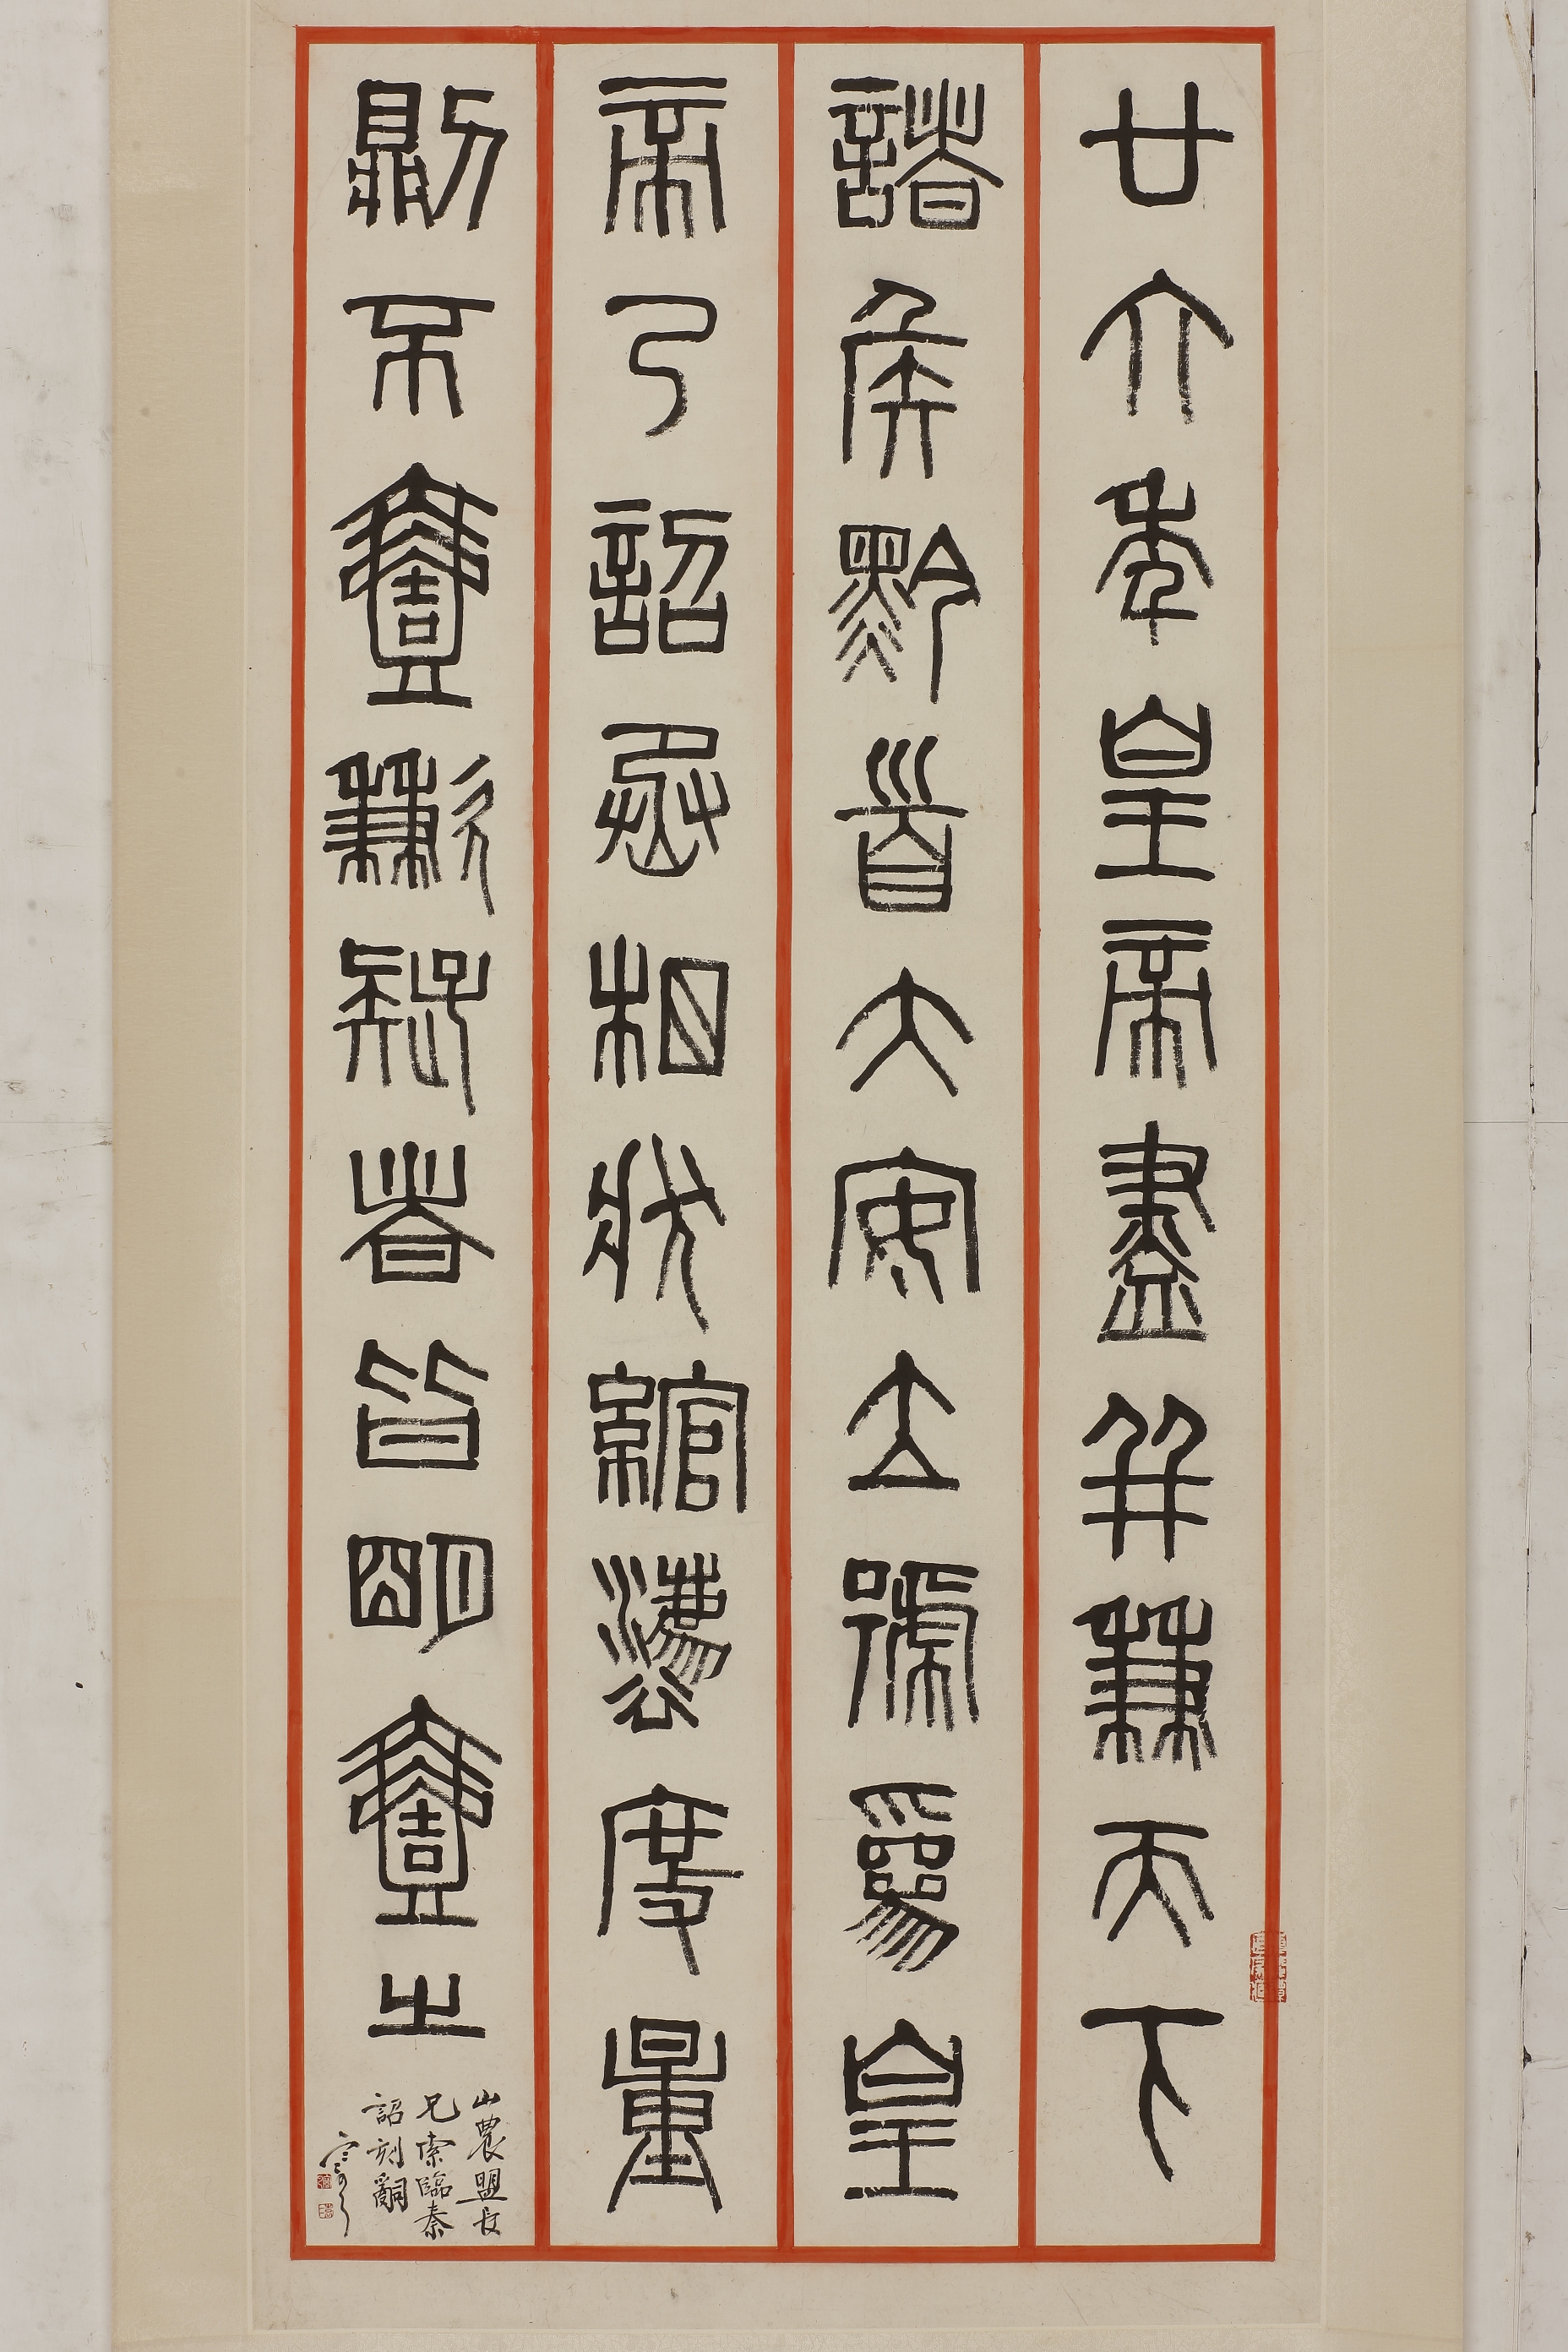 廿六年皇帝盡并兼天下
諸侯黔首大安立號為皇
帝乃詔丞相狀綰灋度量
則不壹歉疑者皆明壹之
山農盟長
兄索臨秦
詔刻辭